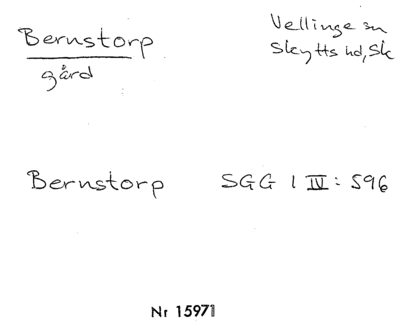 Bernstorp
gård
Vellinge sn
Skytts hd, Sk
Bernstorp SGG 1 IV: 596
Nr 15971